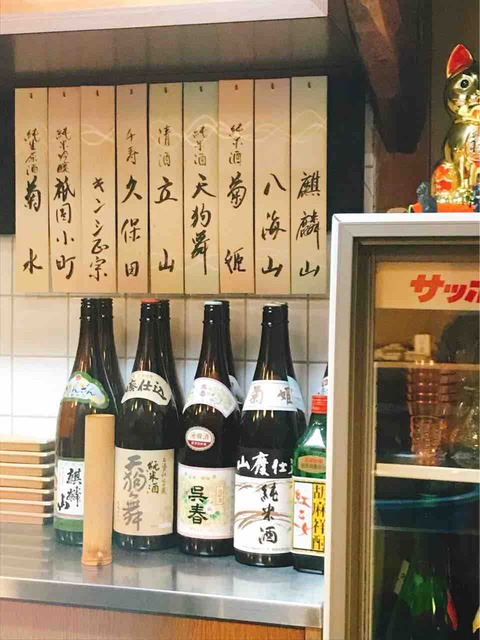 麒麟山
八海山
純米酒 菊姫
純米酒 天狗舞
清酒 立山
千寿 久保田
キンシ正宗
純米吟醸 祇園小町
純生原酒 菊水
サッポ
麒麟山
廃仕込
天狗舞
純米酒
呉春
菊姫
山廃仕込
純米酒
胡麻祥酎
紅乙女